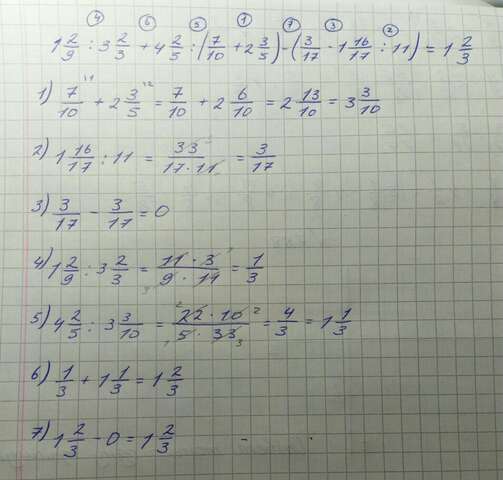 ④ ⑥ ⑤ ① ⑦ ③ ②
1 2/9 : 3 2/3 + 4 2/5 : (7/10 + 2 3/5) - (3/17 - 1 16/17 : 11) = 1 2/3
1) 7/10 \1 + 2 3/5 \2 = 7/10 + 2 6/10 = 2 13/10 = 3 3/10
2) 1 16/17 : 11 = 33/17·11 = 3/17
3) 3/17 - 3/17 = 0
4) 1 2/9 : 3 2/3 = 11·3/9·11 = 1/3
5) 4 2/5 : 3 3/10 = 22·10/5·33 = 4/3 = 1 1/3
6) 1/3 + 1 1/3 = 1 2/3
7) 1 2/3 - 0 = 1 2/3